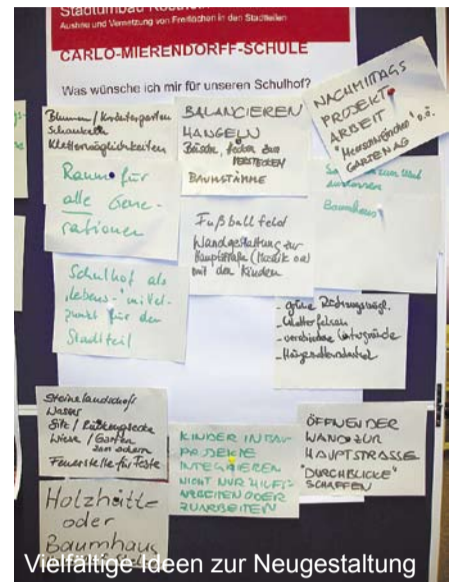 Stadtumbau
Ausbau und Vernetzung von Freiflächen in den Stadtteilen
CARLO-MIERENDORFF-SCHULE
Was wünsche ich mir für unseren Schulhof?
Blumen / Kräutergarten
Schaukeln
Klettermöglichkeiten
BALANCIEREN
HANGELN
Büsche, Ecken zum
VERSTECKEN
BAUMSTÄMME
NACHMITTAGS
PROJEKT
ARBEIT
GARTENAG
Raum für
alle Gene-
rationen
zum und
Baumhaus
Fußballfeld
Wandgestaltung zur
Hauptstraße (Mosaik o.ä.)
mit den Kindern
Schulhof als
"Lebens-"mittel-
punkt für den
Stadtteil
- grüne
- Kletterfelsen
- verschiedene Untergründe
Steinelandschaft
Wasser
Sitz /
Wiese / Garten
Feuerstelle für Feste
KINDER IN
PROJEKTE
INTEGRIEREN
NICHT NUR HILFS-
ARBEITEN ODER
ZUARBEITEN
ÖFFNEN DER
WAND ZUR
HAUPTSTRASSE
"DURCHBLICKE"
SCHAFFEN
Holzhütte
oder
Baumhaus
Vielfältige Ideen zur Neugestaltung